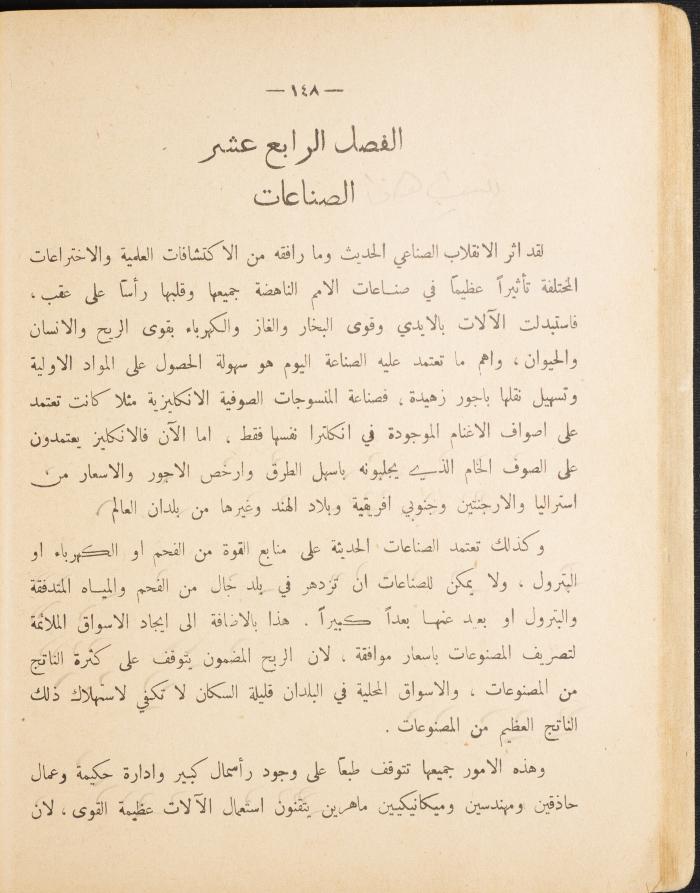 — ١٤٨ —
الفصل الرابع عشر
الصناعات
لقد اثر الانقلاب الصناعي الحديث وما رافقه من الاكتشافات العلمية والاختراعات
المختلفة تأثيراً عظيماً في صناعات الامم الناهضة جميعها وقلبها رأساً على عقب ،
فاستبدلت الآلات بالايدي وقوى البخار والغاز والكهرباء بقوى الريح والانسان
والحيوان ، واهم ما تعتمد عليه الصناعة اليوم هو سهولة الحصول على المواد الاولية
وتسهيل نقلها باجور زهيدة ، فصناعة المنسوجات الصوفية الانكليزية مثلا كانت تعتمد
على اصواف الاغنام الموجودة في انكلترا نفسها فقط ، اما الآن فالانكليز يعتمدون
على الصوف الخام الذي يجلبونه باسهل الطرق وارخص الاجور والاسعار من
استراليا والارجنتين وجنوبي افريقية وبلاد الهند وغيرها من بلدان العالم
وكذلك تعتمد الصناعات الحديثة على منابع القوة من الفحم او الكهرباء او
البترول ، ولا يمكن للصناعات ان تزدهر في بلد خال من الفحم والمياه المتدفقة
والبترول او بعيد عنها بعداً كبيراً . هذا بالاضافة الى ايجاد الاسواق الملائمة
لتصريف المصنوعات باسعار موافقة ، لان الربح المضمون يتوقف على كثرة الناتج
من المصنوعات ، والاسواق المحلية في البلدان قليلة السكان لا تكفي لاستهلاك ذلك
الناتج العظيم من المصنوعات .
وهذه الامور جميعها تتوقف طبعاً على وجود رأسمال كبير وادارة حكيمة وعمال
حاذقين ومهندسين وميكانيكيين ماهرين يتقنون استعمال الآلات عظيمة القوى ، لان